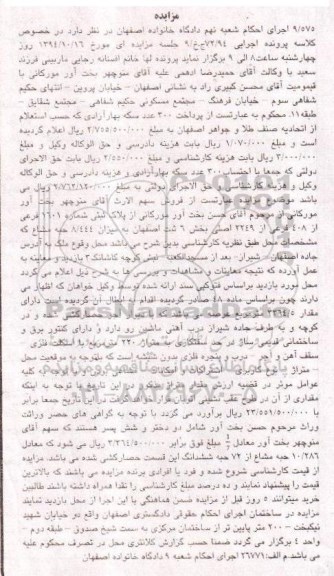 مزایده
۹/۵۷۵ اجرای احکام شعبه نهم دادگاه خانواده اصفهان در نظر دارد در خصوص
کلاسه پرونده اجرایی ۷۲/۹۴ج خ/۹ جلسه مزایده ای مورخ ۱۳۹۴/۱۰/۱۶ روز
چهارشنبه ساعت ۸ الی ۹ برگزار نماید پرونده لها خانم افسانه رجایی ماربینی فرزند
سعید با وکالت آقای حمیدرضا ادهمی علیه آقای منوچهر بخت آور مورکانی با
قیمومیت آقای محسن کبیری راد به نشانی اصفهان - خیابان پروین - انتهای حکیم
شفاهی سوم - خیابان فرهنگ - مجتمع مسکونی حکیم شفاهی - مجتمع شقایق -
طبقه ۱۱. محکوم به عبارتست از پرداخت ۳۰۰ عدد سکه بهارآزادی که حسب استعلام
از اتحادیه صنف طلا و جواهر اصفهان به مبلغ ۲/۷۵۵/۵۰۰/۰۰۰ ریال اعلام گردیده
است و مبلغ ۱/۰۷۰/۰۰۰ ریال بابت هزینه دادرسی و حق الوکاله وکیل و مبلغ
۳/۰۰۰/۰۰۰ ریال بابت هزینه کارشناسی و مبلغ ۲/۵۵۰/۰۰۰ ریال بابت حق الاجرای
دولتی که جمعا با احتساب ۳۰۰ عدد سکه بهارآزادی و هزینه دادرسی و حق الوکاله
وکیل و هزینه کارشناسی و حق الاجرای دولتی به مبلغ ریال می
باشد موضوع مزایده عبارتست از فروش سهم الارث آقای منوچهر بخت آور
مورکانی از مرحوم آقای حسن بخت آور مورکانی از پلاک ثبتی شماره ۱۶۰۱ فرعی
از ۴۰۸ فرعی از ۲۲۴۹ اصلی بخش ۶ ثبت اصفهان به میزان ۸/۴۴۴ حبه مشاعی که
مشخصات محل طبق نظریه کارشناسی بدین شرح می باشد محل وقوع ملک به آدرس
جاده اصفهان - شیراز - بعد از سه راه نبش کوچه کاشانک ۳ بازدید و معاینه به
عمل آورده که نتیجه معاینات و مشاهدات و بررسی ها به شرح ذیل اعلام می گردد
محل مورد بازدید براساس فتوکپی سند ارائه شده توسط وکیل خواهان که اظهار می
دارند چون براساس ماده ۱۸ صادر گردیده اقدام به ابطال آن گردیده است دارای
مقدار متر مربع
کوچه و به طرف جاده شیراز درب آهنی ماشین رو دارد و دارای کنتور برق و
ساختمانی قدیمی ساز در حد سفتکاری به متراژ ۲۲۰ متر مربع با اسکلت فلزی
سقف آهن و آجر - درب و پنجره فلزی بدون شیشه است که باتوجه به موقعیت محل
- متراژ
عوامل موثر در قضیه ارزش مقدار متراژ موجود در این تاریخ با توجه به اینکه
مقداری از آن در طرح عقب نشینی
۲۳/۵۵۱/۵۰۰/۰۰۰ ریال برآورد می گردد با توجه به گواهی های حصر وراثت
وراث مرحوم حسن بخت آور شامل دو دختر و شش پسر هستند که سهم آقای
منوچهر بخت آور معادل مبلغ فوق برابر ۳/۳۶۴/۵۰۰/۰۰۰ ریال می شود که معادل
۱۰/۲۸۶ حبه مشاع از ۷۲ حبه ششدانگ این قسمت حصارکشی شده می باشد. مزایده
از قیمت کارشناسی شروع شده و فرد یا افرادی برنده مزایده می باشند که بالاترین
قیمت را پیشنهاد نمایند و ده درصد مبلغ کارشناسی را نقدا همراه داشته باشند طالبین
خرید میتوانند ۵ روز قبل از مزایده ضمن هماهنگی با این اجرا از محل بازدید نمایند
مزایده در ساختمان اجرای احکام حقوقی دادگستری اصفهان واقع در خیابان شهید
نیکبخت - ۲۰۰ متر پایین تر از ساختمان مرکزی به سمت شیخ صدوق - طبقه دوم -
واحد ٤ برگزار می گردد ضمنا حسب گزارش کلانتری محل در تصرف محکوم علیه
می باشد. م الف: ۲۶۷۷۱ اجرای احکام شعبه ۹ دادگاه خانواده اصفهان